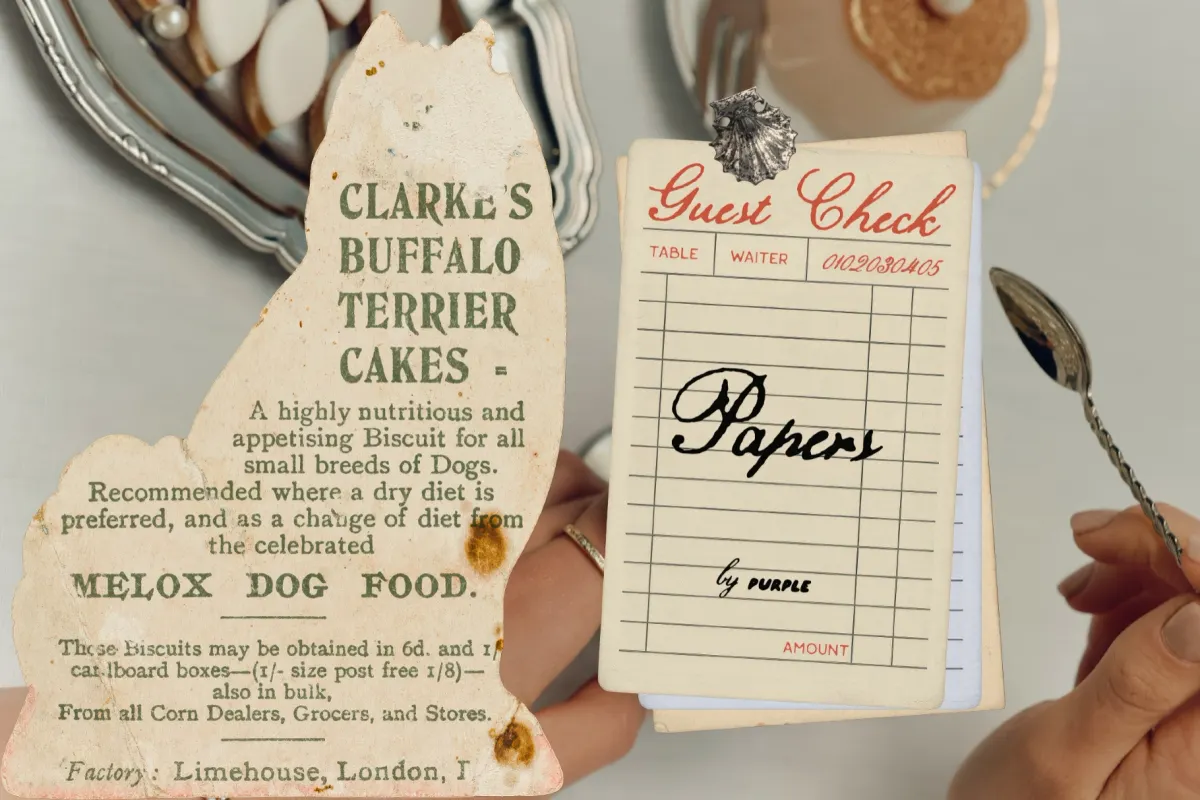 CLARKE'S
BUFFALO
TERRIER
CAKES -
A highly nutritious and
appetising Biscuit for all
small breeds of Dogs.
Recommended where a dry diet is
preferred, and as a change of diet from
the celebrated
MELOX DOG FOOD.
These Biscuits may be obtained in 6d. and 1/
cardboard boxes—(1/- size post free 1/8)—
also in bulk,
From all Corn Dealers, Grocers, and Stores.
Factory: Limehouse, London,
Guest Check
TABLE WAITER 0102030405
Papers
by PURPLE
AMOUNT